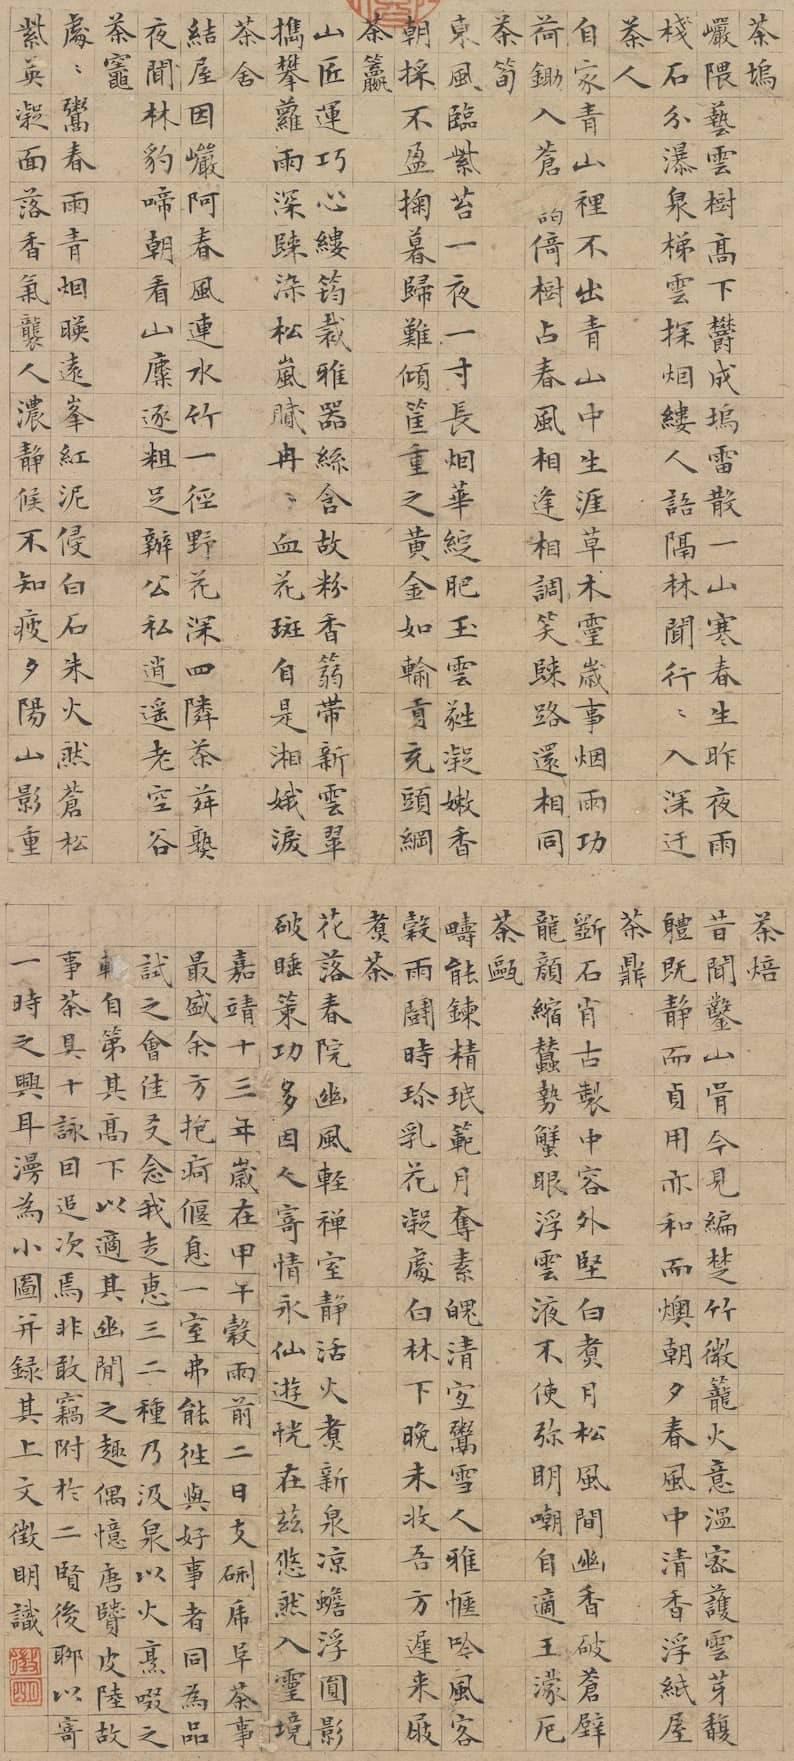 茶塢
巖隈藝雲樹高下欝成塢雷散一山寒春生昨夜雨
棧石分瀑泉梯雲探烟縷人語隔林聞行〻入深迂
茶人
自家青山裡不出青山中生涯草木靈歲事烟雨功
荷鋤入蒼倚樹占春風相逢相調笑歸路還相同
茶筍
東風臨紫苔一夜一寸長烟華綻肥玉雲蕤凝嫩香
朝採不盈掬暮歸難傾筐重之黃金如輪貢充頭綱
茶籯
山匠運巧心縷筠裁雅器絲含故粉香篛帶新雲翠
攜攀蘿雨深歸染松嵐膩冉〻血花斑自是湘娥淚
茶舍
結屋因巖阿春風連水竹一徑野花深四隣茶荈熟
夜聞林豹啼朝看山麋逐粗足辦公私逍遥老空谷
茶竈
處〻鬻春雨青烟暎遠峯紅泥侵白石朱火然蒼松
紫英凝面落香氣襲人濃靜候不知疲夕陽山影重
茶焙
昔聞鑿山骨今見編楚竹微籠火意溫密護雲芽馥
體既静而貞用亦和而燠朝夕春風中清香浮紙屋
茶鼎
斲石肖古製中容外堅白煑月松風間幽香破蒼壁
龍顔縮蠶勢蟹眼浮雲液不使弥明嘲自適王濛厄
茶甌
疇能鍊精珉範月奪素魄清宜鬻雪人雅愜吟風客
穀雨鬭時珍乳花凝處白林下晚未收吾方遲来屐
煑茶
花落春院幽風輕禅室静活火煑新泉凉蟾浮圓影
破睡策功多因人寄情永仙遊恍在兹悠然入靈境
嘉靖十三年歲在甲午穀雨前二日支硎虎阜茶事
最盛余方抱疴偃息一室弗能徃與好事者同為品
試之會佳友念我走惠三二種乃汲泉以火烹啜之
輙自第其高下以適其幽閒之趣偶憶唐賢皮陸故
事茶具十詠因追次焉非敢竊附於二賢後聊以寄
一時之興耳漫為小圖并録其上文徵明識
徵明